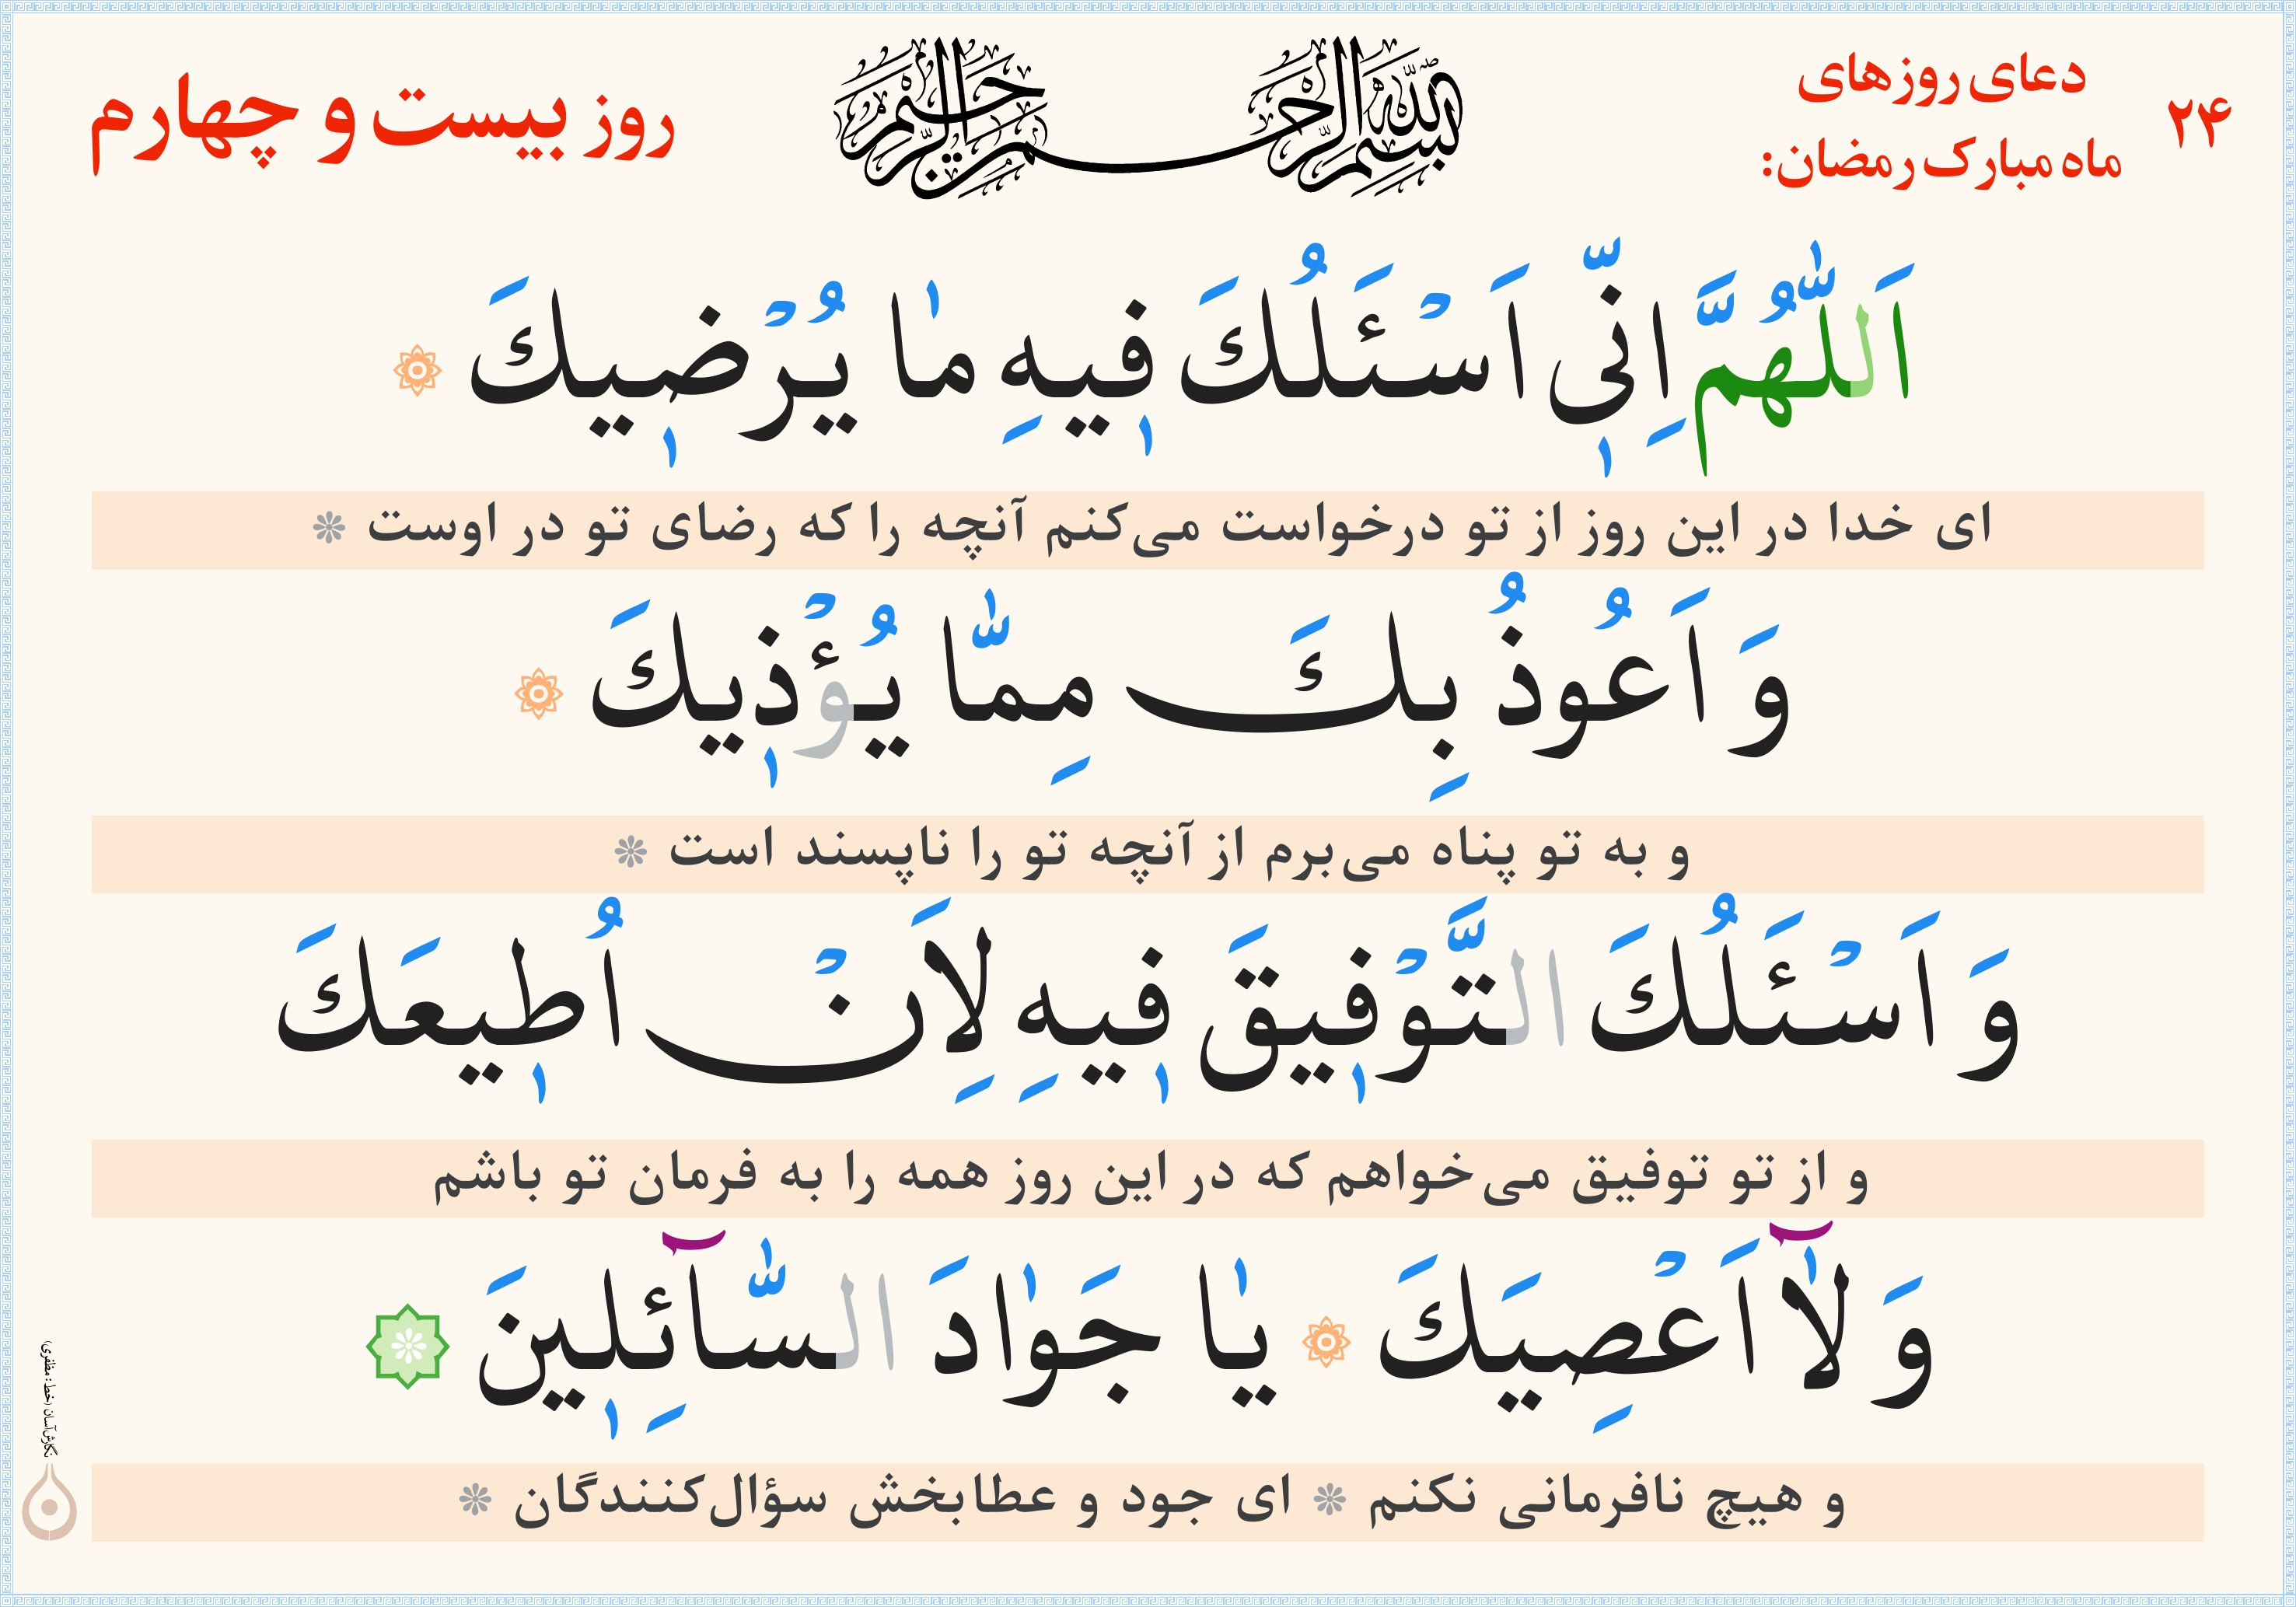 ۲۴
دعای روزهای
ماه مبارک رمضان:
بسم الله الرحمن الرحیم
روز بیست و چهارم
اَللّٰهُمَّ اِنّٖی اَسْئَلُكَ فٖیهِ مٰا یُرْضٖیكَ
ای خدا در این روز از تو درخواست می‌کنم آنچه را که رضای تو در اوست
وَ اَعُوذُ بِكَ مِمّٰا یُؤْذٖیكَ
و به تو پناه می‌برم از آنچه تو را ناپسند است
وَ اَسْئَلُكَ التَّوْفٖیقَ فٖیهِ لِاَنْ اُطٖیعَكَ
و از تو توفیق می‌خواهم که در این روز همه را به فرمان تو باشم
وَ لٰٓا اَعْصِیَكَ یٰا جَوٰادَ السّٰٓائِلٖینَ
و هیچ نافرمانی نکنم ای جود و عطابخش سؤال‌کنندگان
نگارش‌آسان (خط: مظفری)